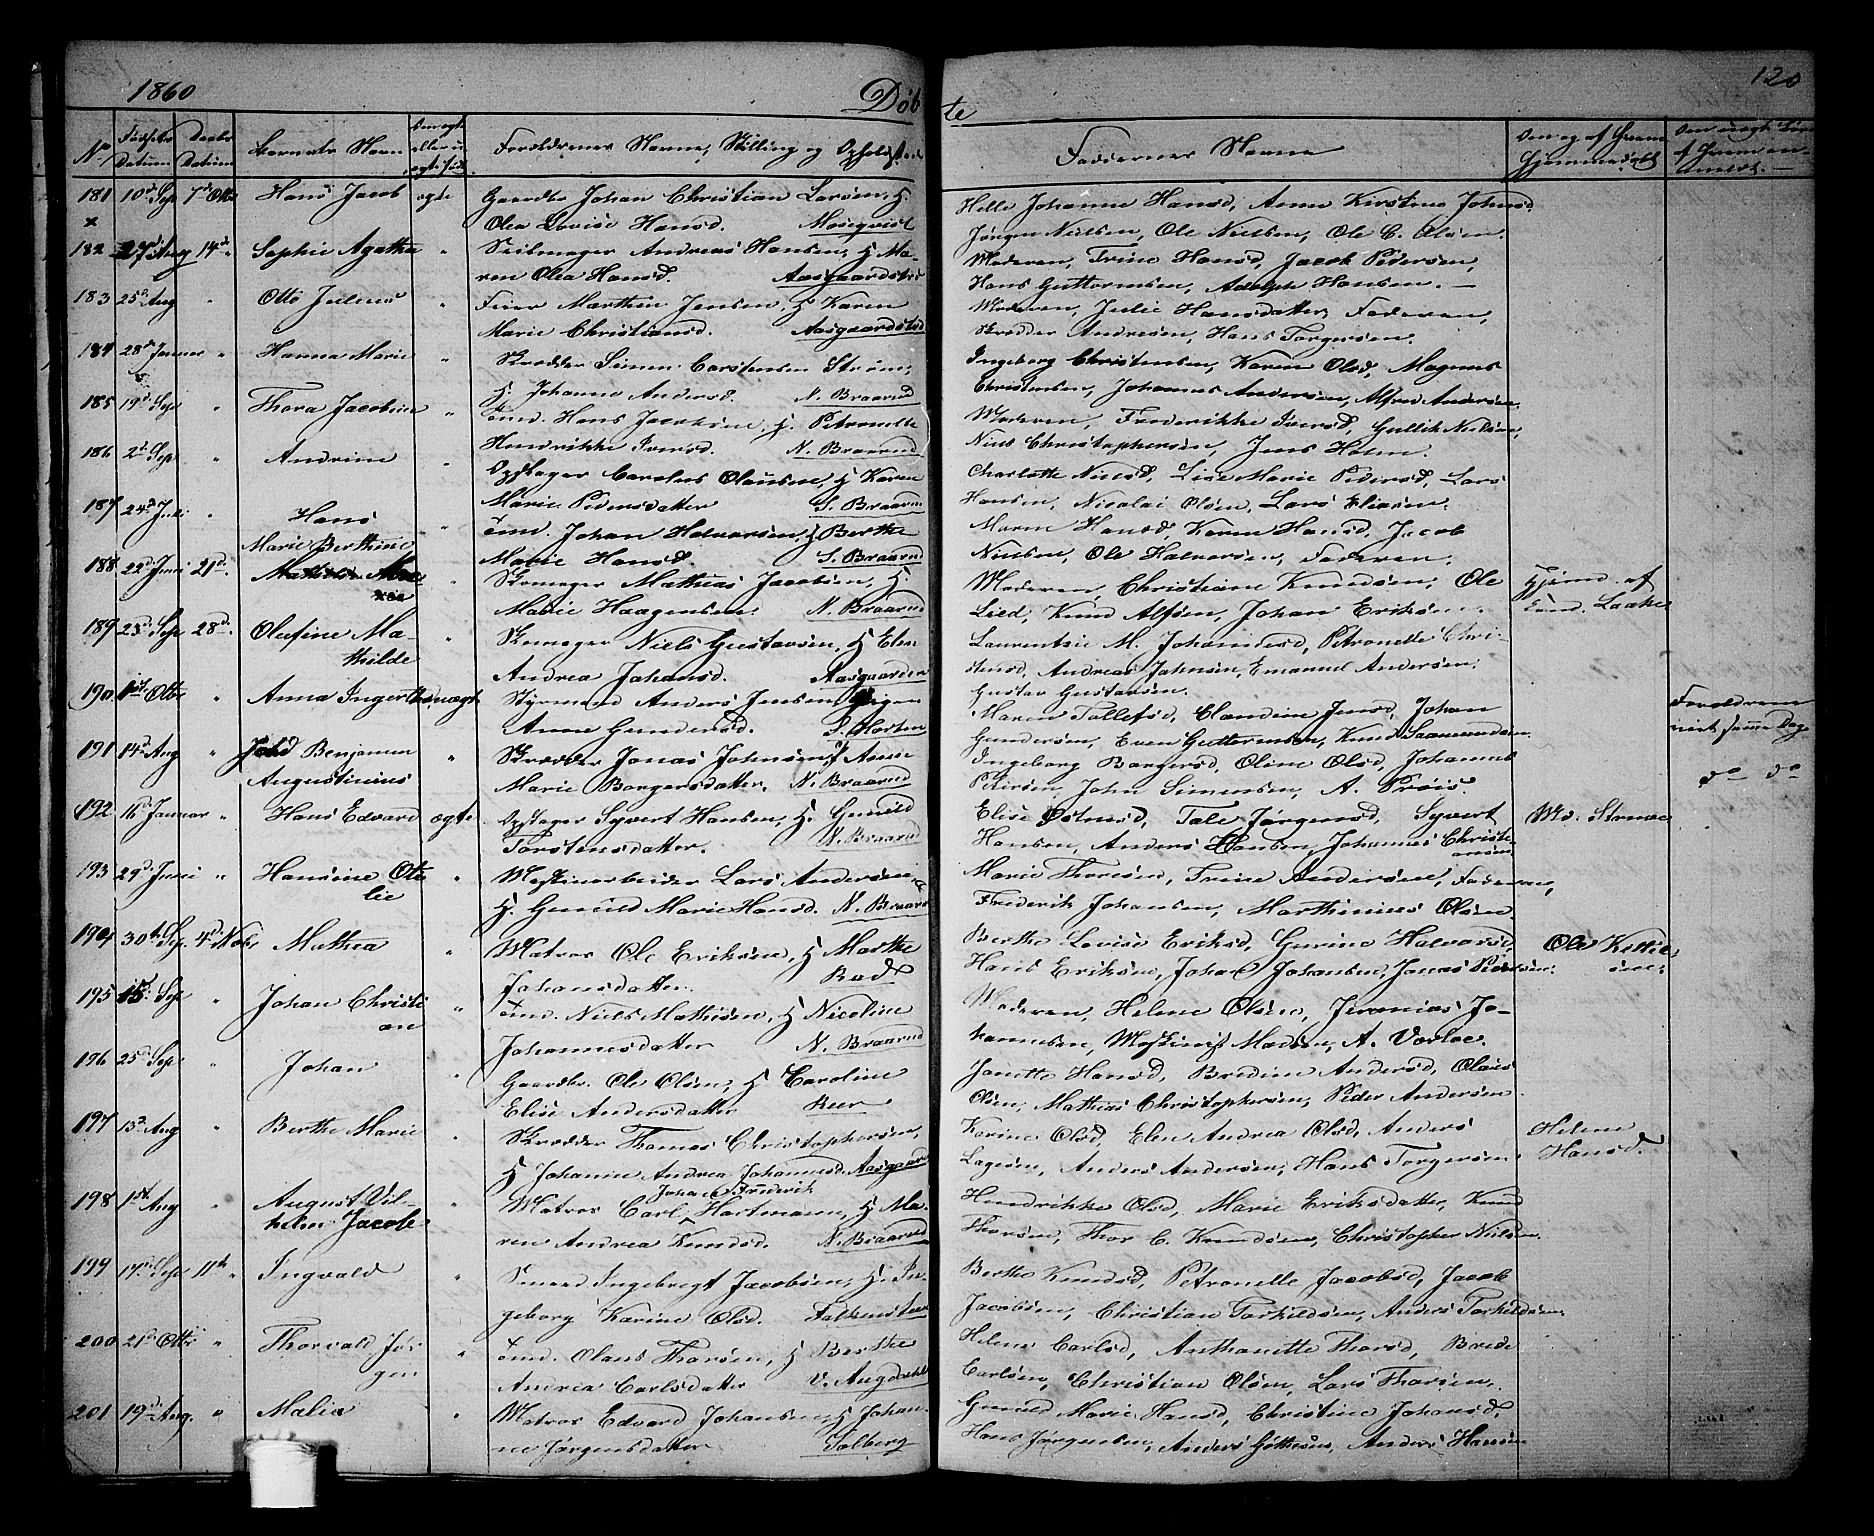 1860
Døbte
120
No
Fødsels Datum
Daabs Datum
Barnets Navn
Om ægte eller uægte født
Forældrenes Navne, Stilling og Opholdssted
Faddernes Navne
Om og af hvem Hjemmedøbt
181 10d Sep 7d Otbr Hans Jacob ægte Gaardbr Johan Christian Larsen, H.
Olea Lovise Hansd. Mosequist
Helle Johanne Hansd, Anne Kirstine Johnsd.
Jørgen Nielsen, Ole Nielsen, Ole C. Olsen.
182 27d Aug 14d " Sophie Agathe " Seilmager Andreas Hansen, H Ma-
ren Olea Hansd. Aasgaardstrd
Moderen, Trine Hansd, Jacob Pedersen,
Hans Guttormsen, Adolph Hansen. —
183 25d Aug " Otto Julius " Feier Marthin Jensen, H Karen
Marie Christiansd. Aasgaardstrd
Moderen, Julie Hansdatter, Faderen,
Skrædder Andresen, Hans Torgersen.
184 28d Januar " Hanna Marie " Skrædder Simen Carstensen Strøm,
H. Johanne Andersd. N. Braarud
Ingeborg Christensen, Karen Olsd, Magnus
Christensen, Johannes Andersen, Alfred Andersen.
185 19d Sep " Thora Jacobine " Tømd. Hans Jacobsen, H. Petronelle
Hendrikke Iversd. N. Braarud
Moderen, Frederikke Iversd, Gullik Nielsen,
Niels Christophersen, Jens Holm.
186 2d Sep " Andrine " Opstager Carolus Olausen, H Karen
Marie Pedersdatter S. Braarud
Charlotte Nielsd, Lise Marie Pedersd, Lars
Hansen, Nicolai Olsen, Lars Eliasen.
187 24d Juli " Hans " Tømd. Johan Halvorsen, H Berthe
Marie Hansd. S. Braarud
Maren Hansd, Karen Hansd, Jacob
Nielsen, Ole Halvorsen, Faderen.
188 22d Juni 21d. Marie Berthine " Skomager Mathias Jacobsen, H.
Marie Haagensen. N. Braarud
Moderen, Christiane Knudsen, Ole
Lied, Knud Alfsen, Johan Eriksen.
Hjemd. af
Laake
189 23d Sep 28d. Olufine Ma-
thilde " Skomager Niels Gustavsen, H Elen
Andrea Johansd. Aasgaarden
Laurentse M. Johannesd, Petronelle Chri-
stensd, Andreas Johnsen, Emanuel Andersen,
Gustav Gustavsen.
190 1st Otbr " Anna Inger uægte Styrmand Anders Jensen, Pigen
Anne Gundersd. S. Horten
Maren Tollefsd, Claudine Jensd, Johan
Gundersen, Even Guttormsen, Knud Saamundsen
Forældrene
viet samme Dag
191 14d Aug " Benjamin
Augustinius " Skrædder Jonas Johnsen, Anne
Marie Borgersdatter. N. Braarud
Ingeborg Borgersd, Oline Olsd, Johannes
Petersen, John Simensen, A. Prøis.
do do
192 16d Januar " Hans Edvard ægte Opstager Syvert Hansen, H. Gunild
Torstensdatter. N. Braarud
Elise Østensd, Tale Jørgensd, Syvert
Hansen, Anders Hansen, Johannes Christi-
ansen
193 29d Juni " Hansine Ote
lie " Maskinarbeider Lars Andersen,
H. Gunild Marie Hansd. N. Braarud
Marie Thoresen, Trine Andersen, Faderen,
Frederik Johansen, Marthinius Olsen.
194 30d Sep. 4d Nvbr Mathea " Matros Ole Eriksen, H Marthe
Johansdatter. Rød
Berthe Lovise Eriksd, Gurine Halvorsd,
Hans Eriksen, Johan Johansen, Jonas Pedersen.
Ole Kittil-
sen.
195 15d. Sep " Johan Christi
an " Tømd. Niels Mathisen, H Nicoline
Johannesdatter N. Braarud
Moderen, Helene Olsen, Jeremias Jo-
hannesen, Maskinist Madsen, A. Vorloe.
196 25d Sep " Johan " Gaardbr. Ole Olsen, H Caroline
Elise Andersdatter Reer
Janette Hansd, Bredine Andersd, Olaus
Olsen, Mathias Christophersen, Peder Andersen
197 13d Aug " Berthe Marie " Skrædder Thomas Christophersen,
H Johanne Andrea Johannesd. Aasgaard
Karine Olsd, Elen Andrea Olsd, Anders
Lagesen, Anders Andersen, Hans Torgersen
Helene
Hansd.
198 1st Aug " August Vil-
helm Jacob " Matros Carl Johan Frederik Hartmann, H Ma-
ren Andrea Knudsd. N. Braarud
Hendrikke Olsd, Marie Eriksdatter, Knud
Thorsen, Thor C. Knudsen, Christopher Nielsen.
199 17d. Sep 11te " Ingvald " Smed Ingebregt Jacobsen, H. In-
geborg Karine Olsd. Falkensteen
Berthe Knudsd, Petronelle Jacobsd, Jacob
Jacobsen, Christian Torkildsen, Anders Torkildsen.
200 21d Otbr " Thorvald Jør
gen " Tømd. Olaus Thorsen, H Berthe
Andrea Carlsdatter V. Augdahl
Helene Carlsd, Anthonette Thorsd, Brede
Carlsen, Christian Olsen, Lars Thorsen.
201 19d. Aug. " Malia " Matros Edvard Johansen, H Johan-
ne Jørgensdatter Solberg
Gunild Marie Hansd, Christine Johansd,
Hans Jørgensen, Anders Gøthesen, Anders Hansen